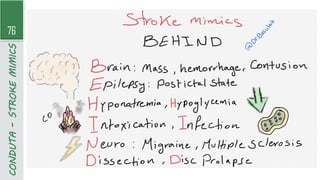 76
CONDUTA - STROKE MIMICS
Stroke mimics
BEHIND
Brain: Mass, hemorrhage, Contusion
Epilepsy: Postictal State
Hyponatremia, Hypoglycemia
Intoxication, Infection
Neuro: Migraine, Multiple Sclerosis
Dissection, Disc Prolapse